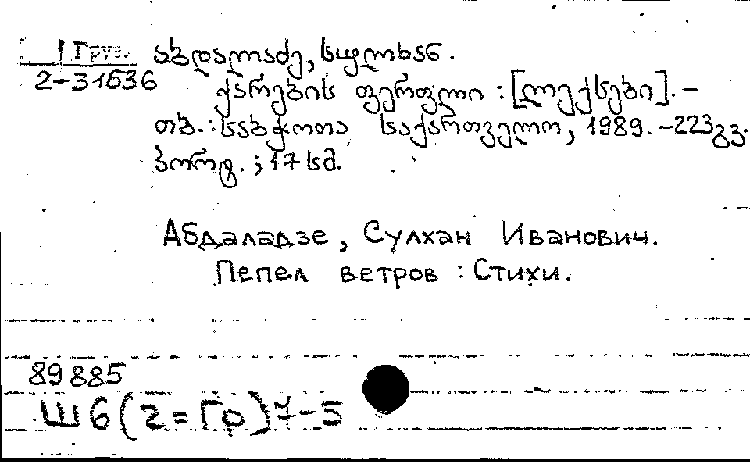 1 Груз.
2-31536
აბდალაძე, სულხან.
ქარების ფერფლი : [ლექსები]. -
თბ. : საბჭოთა საქართველო, 1989. -223გვ.
პორტ. ; 17 სმ.
Абдаладзе, Сулхан Иванович.
Пепел ветров : Стихи.
89885
Ш6(2=Гр)7-5